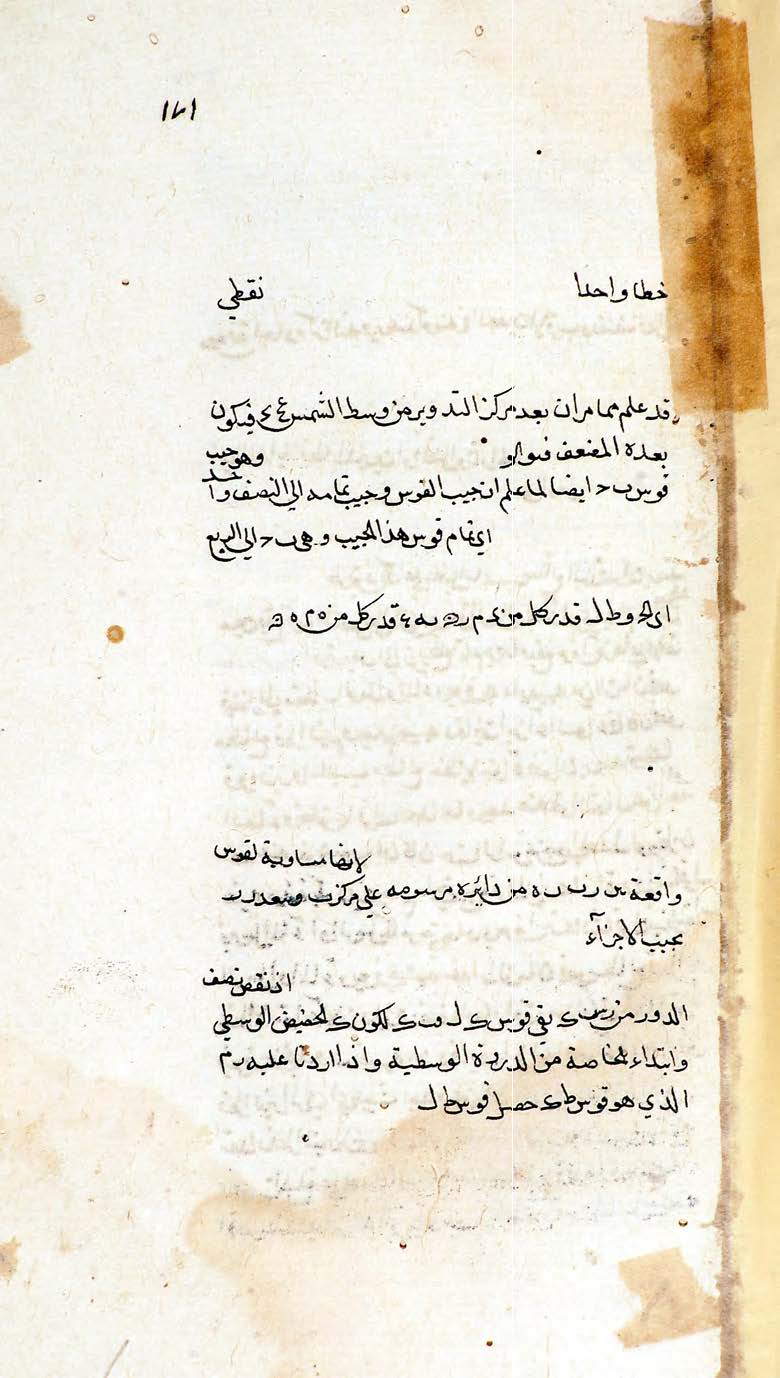 ١٧١
خطا واحدا نقطي
قد علم مما مر ان بعد مركز التدوير من وسط الشمس فيكون
بعده المضعف وهو جيب
قوس ب ح ايضا لما علم ان جيب القوس وجيب تمامه الى النصف واحد
اي تمام قوس هذا الجيب وهي ب ح الى الربع
قدر كل من قدر كل من
لانها مساوية لقوس
واقعة بين من دايرة مرسومة على مركز وببعد
بجيب الاجزآء
اذ نقص نصف
الدور من يبقى قوس لكون ك الحضيض الوسطي
وابتداء الخاصة من الذروة الوسطية واذا اردنا عليه
الذي هو قوس ط ك حصل قوس ط ل